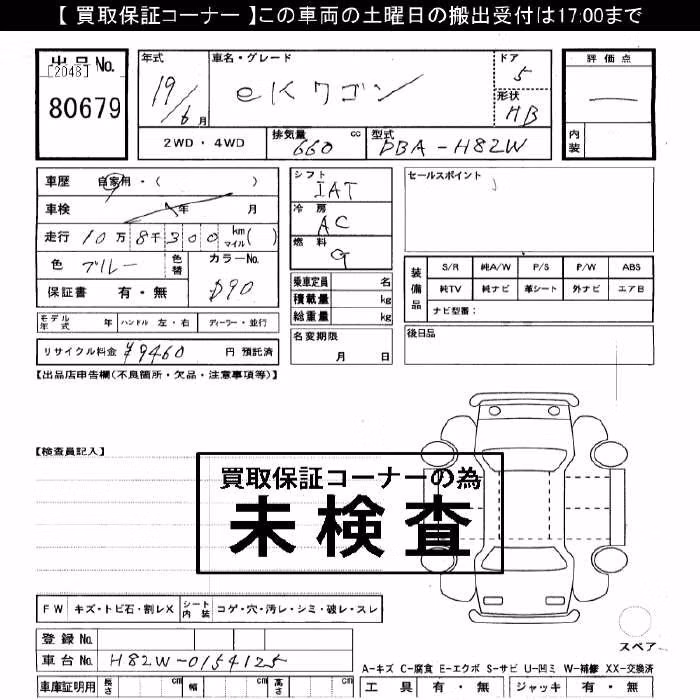 【 買取保証コーナー 】この車両の土曜日の搬出受付は17:00まで
出品No.
[2048]
80679
年式
19/6月
車名・グレード
eKワゴン
ドア
5
形状
HB
2WD・4WD
排気量
660 cc
型式
DBA-H82W
評価点
内装
車歴 自家用・( )
車検 年 月
走行 10万8千300 km マイル( )
色 ブルー
色替
カラーNo.
D90
保証書 有・無
シフト
IAT
冷房
AC
燃料
G
乗車定員 名
積載量 kg
総重量 kg
名変期限
月 日
セールスポイント
装備品
S/R 純A/W P/S P/W ABS
純TV 純ナビ 革シート 外ナビ エアB
ナビ型番:
後日品
モデル年式 年 ハンドル 左・右 ディーラー・並行
リサイクル料金 ¥9460 円 預託済
【出品店申告欄(不良箇所・欠品・注意事項等)】
【検査員記入】
買取保証コーナーの為
未検査
FW キズ・トビ石・割レX シート内装 コゲ・穴・汚レ・シミ・破レ・スレ
登録No.
車台No. H82W-0154125
車庫証明用 長さ cm 幅 cm 高さ cm
スペア
A-キズ C-腐食 E-エクボ S-サビ U-凹ミ W-補修 XX-交換済
工具 有・無 ジャッキ 有・無